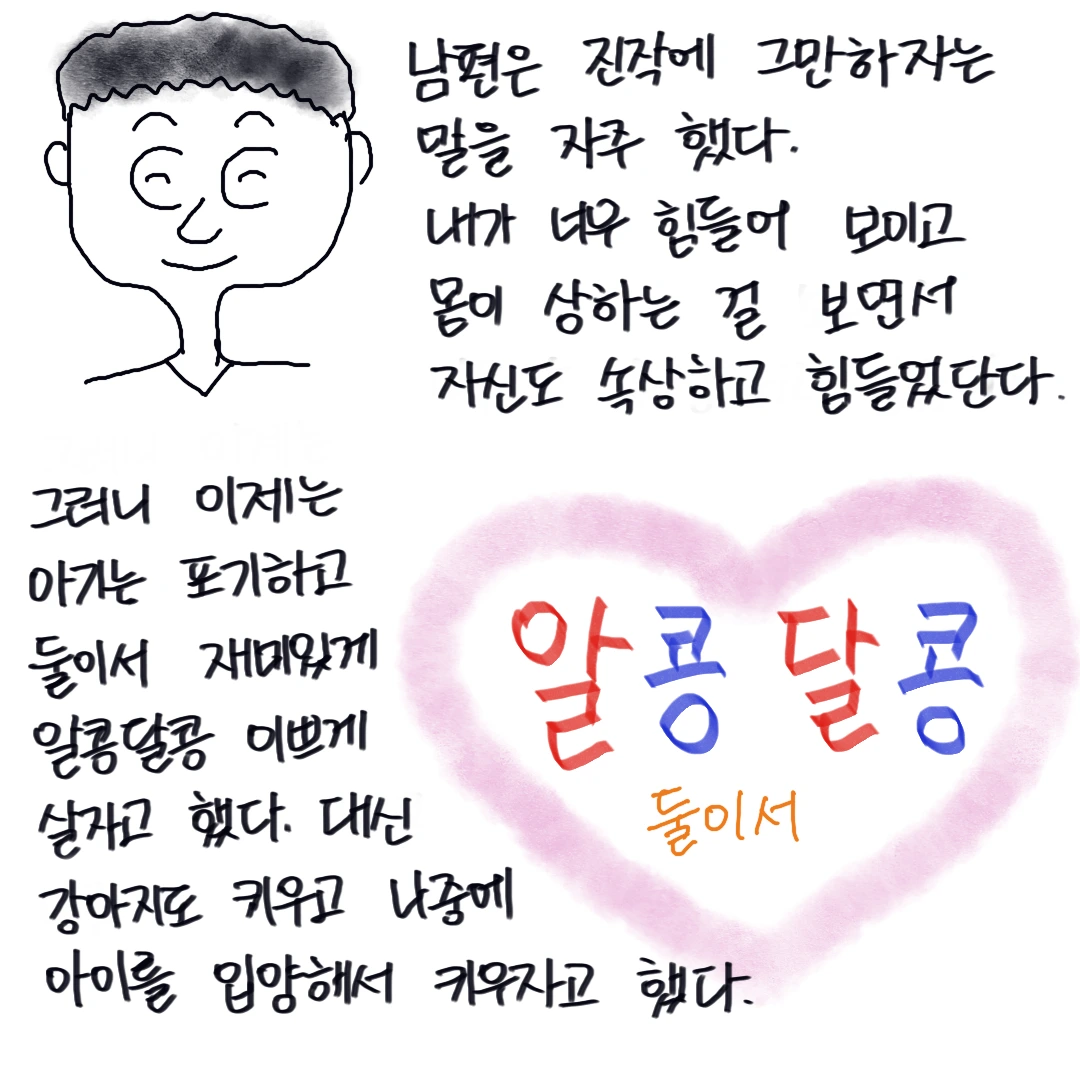 남편은 진작에 그만하자는
말을 자주 했다.
내가 너무 힘들어 보이고
몸이 상하는 걸 보면서
자신도 속상하고 힘들었단다.
그러니 이제는
아기는 포기하고
둘이서 재미있게
알콩달콩 이쁘게
살자고 했다. 대신
강아지도 키우고 나중에
아이를 입양해서 키우자고 했다.
알콩달콩
둘이서